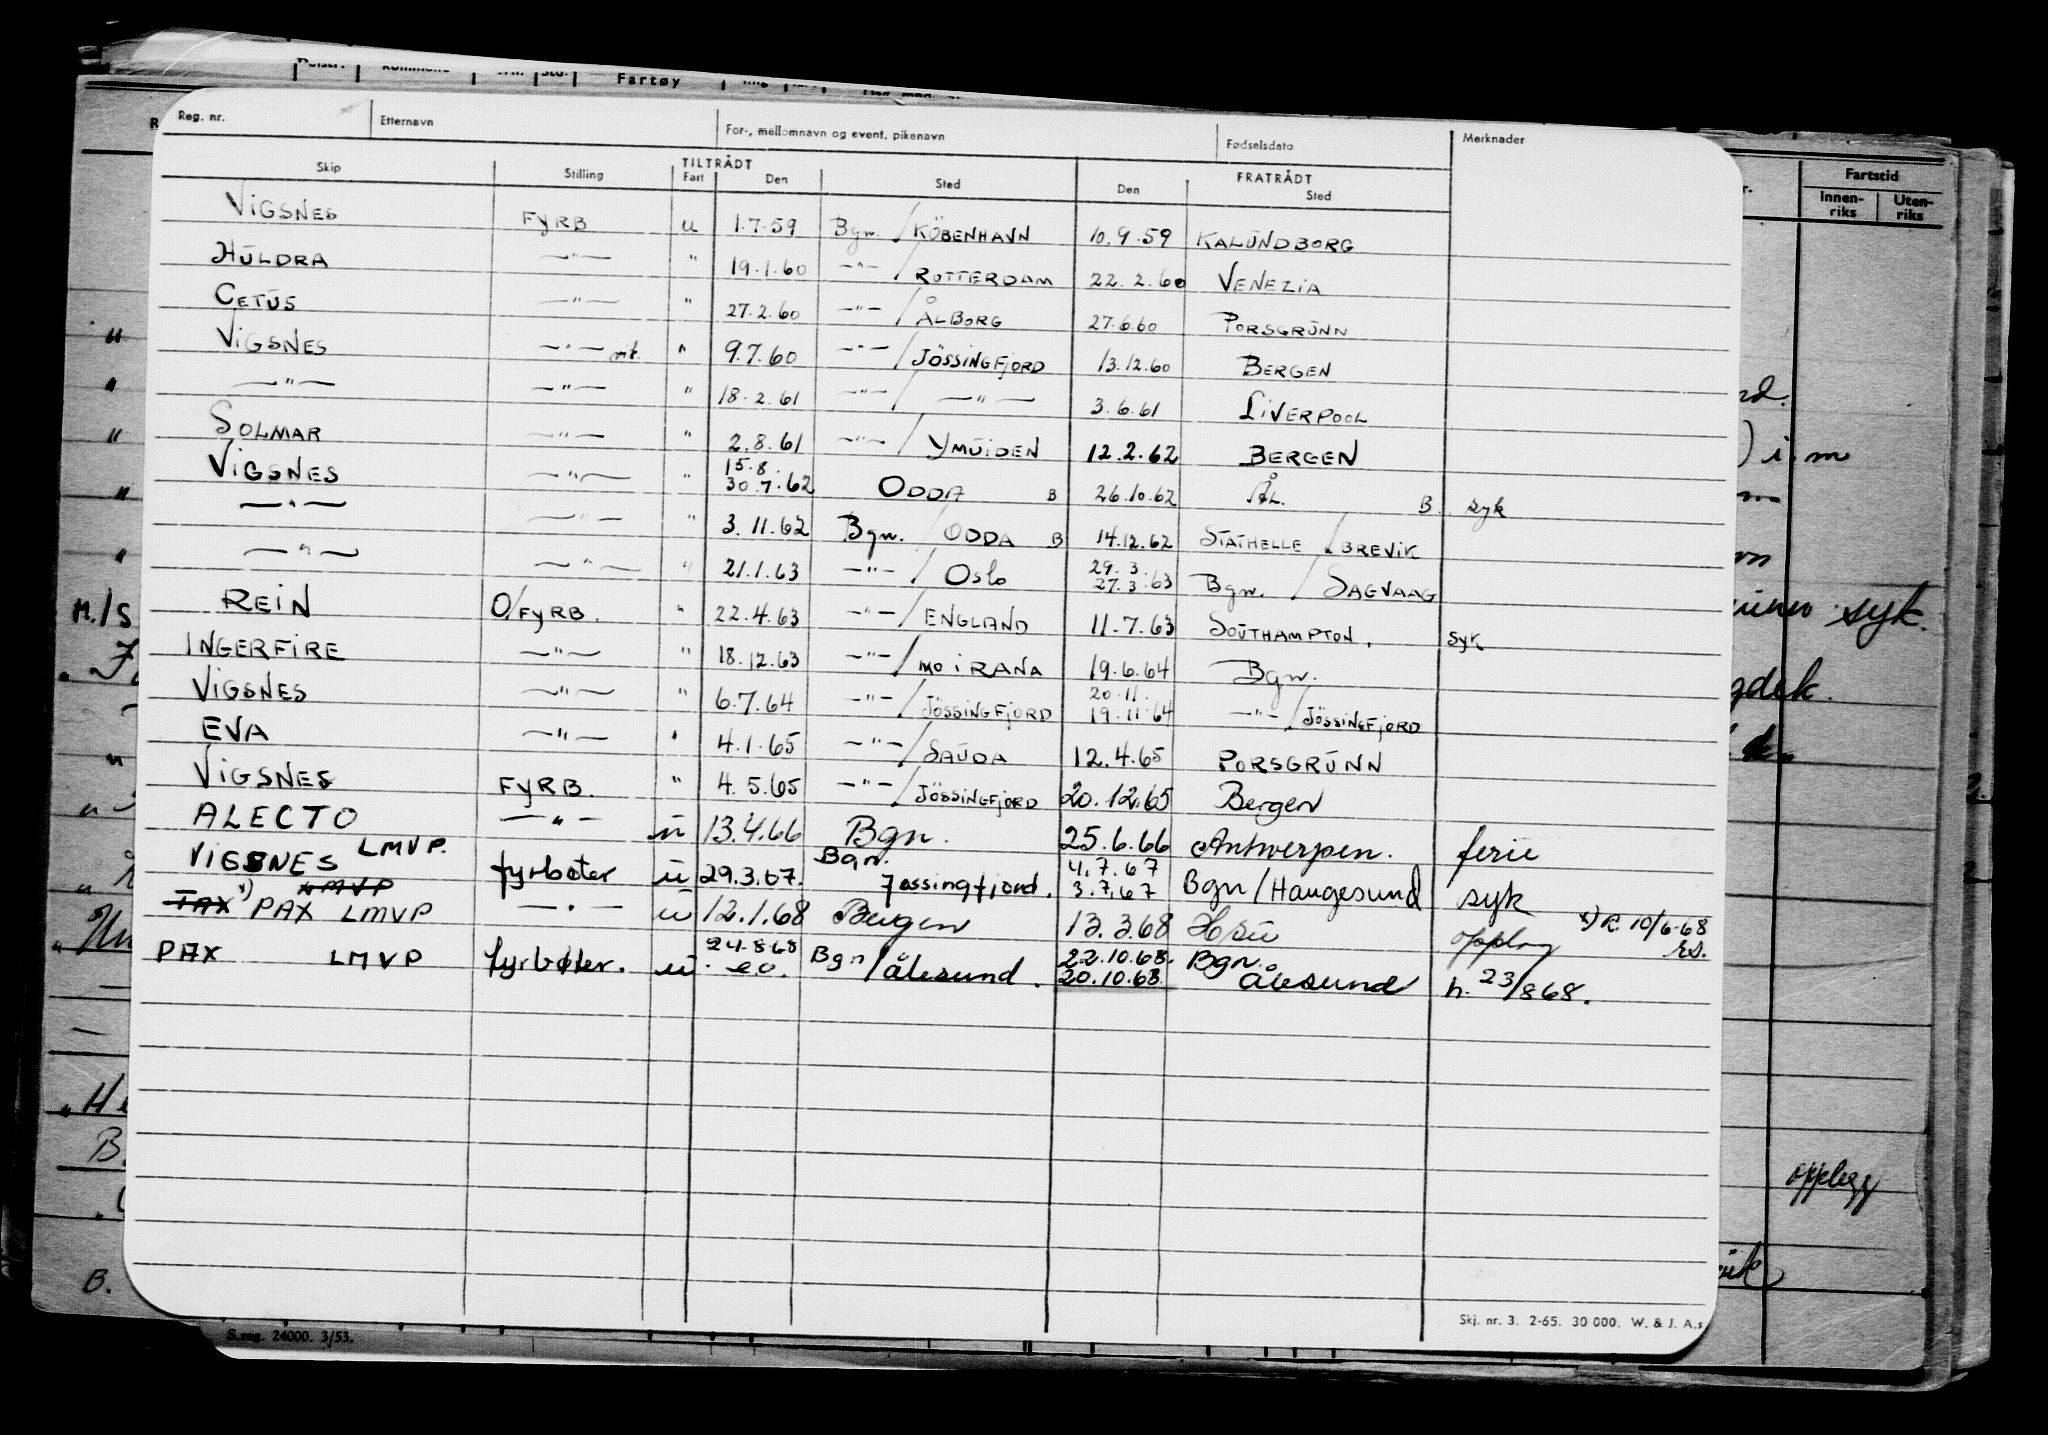 Fartøy
Reg. nr. Etternavn For-, mellomnavn og event. pikenavn Fødselsdato Merknader
TILTRÅDT FRATRÅDT
Skip Stilling Fart Den Sted Den Sted
Fartstid
Innen-riks Uten-riks
VIGSNES FYRB u 1.7.59 Bgn. / KÖBENHAVN 10.9.59 KALUNDBORG
HULDRA —"— " 19.1.60 —"— / ROTTERDAM 22.2.60 VENEZIA
CETUS —"— " 27.2.60 —"— / ÅLBORG 27.6.60 PORSGRUNN
VIGSNES —"— " 9.7.60 —"— / JÖSSINGFJORD 13.12.60 BERGEN
—"— —"— " 18.2.61 —"— / —"— 3.6.61 LIVERPOOL
SOLMAR —"— " 2.8.61 —"— / YMUIDEN 12.2.62 BERGEN
VIGSNES —"— " 15.8. 30.7.62 ODDA B 26.10.62 ÅL. B. syk
—"— —"— " 3.11.62 Bgn. / ODDA B 14.12.62 STATHELLE / BREVIK
—"— —"— " 21.1.63 —"— / Oslo 29.3. 27.3.63 Bgn. / SAGVAAG
REIN O/FYRB. " 22.4.63 —"— / ENGLAND 11.7.63 SOUTHAMPTON. syk
INGERFIRE —"— " 18.12.63 —"— / MO I RANA 19.6.64 Bgn.
VIGSNES —"— " 6.7.64 —"— / JÖSSINGFJORD 20.11. 19.11.64 —"— / JÖSSINGFJORD
EVA —"— " 4.1.65 —"— / SAUDA 12.4.65 PORSGRUNN
VIGSNES FYRB. " 4.5.65 —"— / JÖSSINGFJORD 20.12.65 Bergen
ALECTO —"— u 13.4.66 Bgn. 25.6.66 Antwerpen. ferie
VIGSNES LMVP. fyrbøter u 29.3.67. Bgn. Jøssingfjord. 4.7.67 3.7.67 Bgn/Haugesund syk
TAX x) PAX LMVP —"— u 12.1.68 Bergen 13.3.68 Hsu opplag x) R. 10/6-68 rs.
PAX LMVP fyrbøter. u 24.8.68 Bgn/ålesund. 22.10.68. 20.10.68. Bgn. ålesund h. 23/868.
M/S
syk.
opplegg
B.
S.reg. 24000. 3/53.
Skj. nr. 3. 2-65. 30 000. W. & J. A.s